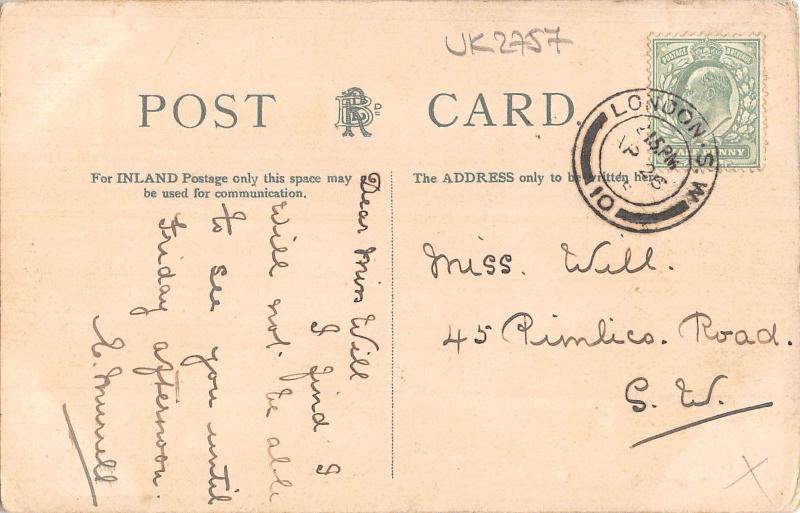 UK2757
POST CARD.
For INLAND Postage only this space may
be used for communication.
The ADDRESS only to be written here.
POSTAGE REVENUE
HALF PENNY
LONDON. S.W.
2.45 PM
06
10
Dear Miss Will
I find I
will not be able
to see you until
Friday afternoon.
E. Murrell
Miss. Will.
45 Pimlico. Road.
S. W.